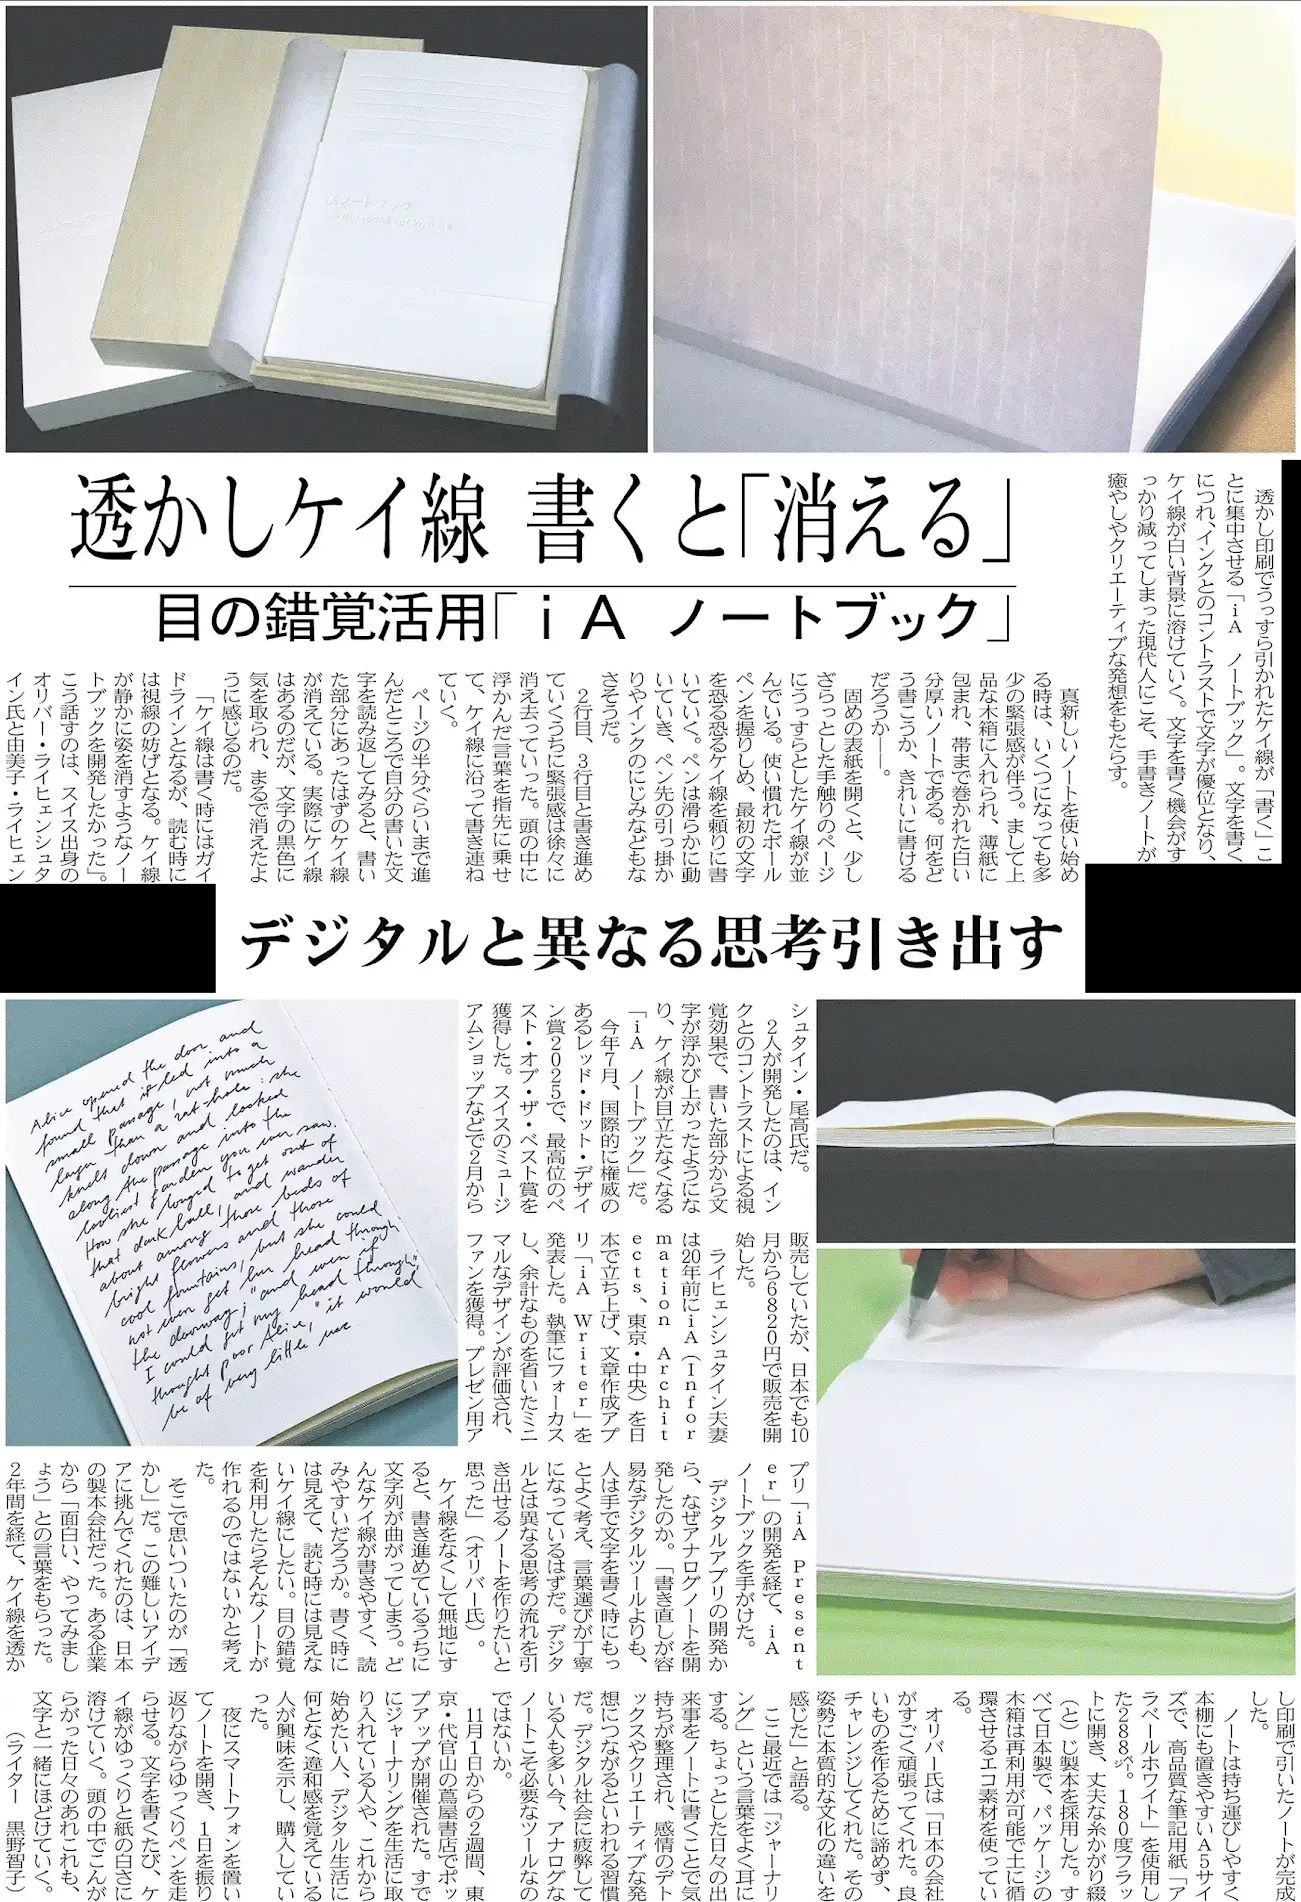 透かしケイ線 書くと「消える」
目の錯覚活用「iA ノートブック」
透かし印刷でうっすら引かれたケイ線が「書く」こ
とに集中させる「iA ノートブック」。文字を書く
につれ、インクとのコントラストで文字が優位となり、
ケイ線が白い背景に溶けていく。文字を書く機会がす
っかり減ってしまった現代人にこそ、手書きノートが
癒やしやクリエーティブな発想をもたらす。
真新しいノートを使い始め
る時は、いくつになっても多
少の緊張感が伴う。まして上
品な木箱に入れられ、薄紙に
包まれ、帯まで巻かれた白い
分厚いノートである。何をど
う書こうか、きれいに書ける
だろうか――。
固めの表紙を開くと、少し
ざらっとした手触りのページ
にうっすらとしたケイ線が並
んでいる。使い慣れたボール
ペンを握りしめ、最初の文字
を恐る恐るケイ線を頼りに書
いていく。ペンは滑らかに動
いていき、ペン先の引っ掛か
りやインクのにじみなどもな
さそうだ。
2行目、3行目と書き進め
ていくうちに緊張感は徐々に
消え去っていった。頭の中に
浮かんだ言葉を指先に乗せ
て、ケイ線に沿って書き連ね
ていく。
ページの半分ぐらいまで進
んだところで自分の書いた文
字を読み返してみると、書い
た部分にあったはずのケイ線
が消えている。実際にケイ線
はあるのだが、文字の黒色に
気を取られ、まるで消えたよ
うに感じるのだ。
「ケイ線は書く時にはガイ
ドラインとなるが、読む時に
は視線の妨げとなる。ケイ線
が静かに姿を消すようなノー
トブックを開発したかった」。
こう話すのは、スイス出身の
オリバー・ライヒェンシュタ
イン氏と由美子・ライヒェン
デジタルと異なる思考引き出す
シュタイン・尾高氏だ。
2人が開発したのは、イン
クとのコントラストによる視
覚効果で、書いた部分から文
字が浮かび上がったようにな
り、ケイ線が目立たなくなる
「iA ノートブック」だ。
今年7月、国際的に権威の
あるレッド・ドット・デザイ
ン賞2025で、最高位のベ
スト・オブ・ザ・ベスト賞を
獲得した。スイスのミュージ
アムショップなどで2月から
販売していたが、日本でも10
月から6820円で販売を開
始した。
ライヒェンシュタイン夫妻
は20年前にiA（Infor
mation Archit
ects、東京・中央）を日
本で立ち上げ、文章作成アプ
リ「iA Writer」を
発表した。執筆にフォーカス
し、余計なものを省いたミニ
マルなデザインが評価され、
ファンを獲得。プレゼン用ア
プリ「iA Present
er」の開発を経て、iA
ノートブックを手がけた。
デジタルアプリの開発か
ら、なぜアナログノートを開
発したのか。「書き直しが容
易なデジタルツールよりも、
人は手で文字を書く時にもっ
とよく考え、言葉選びが丁寧
になっているはずだ。デジタ
ルとは異なる思考の流れを引
き出せるノートを作りたいと
思った」（オリバー氏）。
ケイ線をなくして無地にす
ると、書き進めているうちに
文字列が曲がってしまう。ど
んなケイ線が書きやすく、読
みやすいだろうか。書く時に
は見えて、読む時には見えな
いケイ線にしたい。目の錯覚
を利用したらそんなノートが
作れるのではないかと考え
た。
そこで思いついたのが「透
かし」だ。この難しいアイデ
アに挑んでくれたのは、日本
の製本会社だった。ある企業
から「面白い、やってみまし
ょう」との言葉をもらった。
2年間を経て、ケイ線を透か
し印刷で引いたノートが完成
した。
ノートは持ち運びしやすく
本棚にも置きやすいA5サイ
ズで、高品質な筆記用紙「ア
ラベールホワイト」を使用し
た288㌻。180度フラッ
トに開き、丈夫な糸かがり綴
（と）じ製本を採用した。す
べて日本製で、パッケージの
木箱は再利用が可能で土に循
環させるエコ素材を使ってい
る。
オリバー氏は「日本の会社
がすごく頑張ってくれた。良
いものを作るために諦めず、
チャレンジしてくれた。その
姿勢に本質的な文化の違いを
感じた」と語る。
ここ最近では「ジャーナリ
ング」という言葉をよく耳に
する。ちょっとした日々の出
来事をノートに書くことで気
持ちが整理され、感情のデト
ックスやクリエーティブな発
想につながるといわれる習慣
だ。デジタル社会に疲弊して
いる人も多い今、アナログな
ノートこそ必要なツールなの
ではないか。
11月1日からの2週間、東
京・代官山の蔦屋書店でポッ
プアップが開催された。すで
にジャーナリングを生活に取
り入れている人や、これから
始めたい人、デジタル生活に
何となく違和感を覚えている
人が興味を示し、購入してい
った。
夜にスマートフォンを置い
てノートを開き、1日を振り
返りながらゆっくりペンを走
らせる。文字を書くたび、ケ
イ線がゆっくりと紙の白さに
溶けていく。頭の中でこんが
らがった日々のあれこれも、
文字と一緒にほどけていく。
（ライター 黒野智子）
ノートブック
Alice opened the door and
found that it led into a
small passage, not much
larger than a rat-hole: she
knelt down and looked
along the passage into the
loveliest garden you ever saw.
How she longed to get out of
that dark hall, and wander
about among those beds of
bright flowers and those
cool fountains, but she could
not even get her head through
the doorway; "and even if
I could get my head through,"
thought poor Alice, "it would
be of very little use